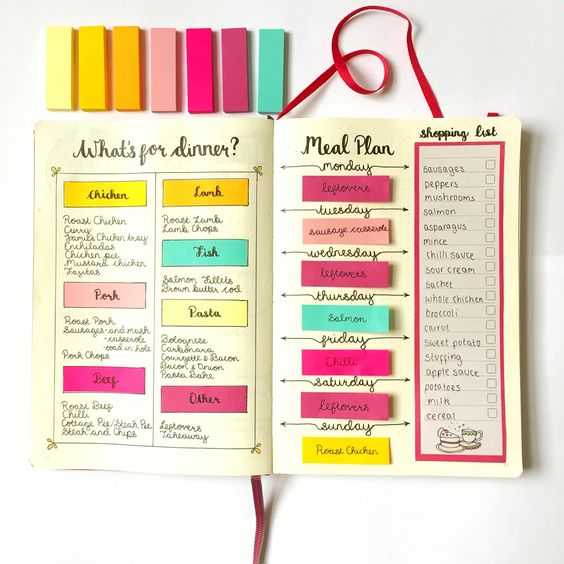 What's for dinner?
Chicken
Roast Chicken
Curry
Jamie's Chicken tray
Enchiladas
Chicken pie
Mustard Chicken
Fajitas
Pork
Roast Pork
Sausages - and mash
- casserole
- toad in hole
Pork Chops
Beef
Roast Beef
Chilli
Cottage Pie/Steak Pie
Steak and Chips
Lamb
Roast Lamb
Lamb Chops
Fish
Salmon Fillets
Brown butter cod
Pasta
Bolognese
Carbonara
Courgette & Bacon
Bacon & Onion
Pasta Bake
Other
Leftovers
Takeaway
Meal Plan
monday
leftovers
tuesday
sausage casserole
wednesday
leftovers
thursday
Salmon
friday
Chilli
saturday
leftovers
sunday
Roast Chicken
shopping list
sausages
peppers
mushrooms
salmon
asparagus
mince
chilli sauce
sour cream
sachet
whole chicken
broccoli
carrot
sweet potato
stuffing
apple sauce
potatoes
milk
cereal